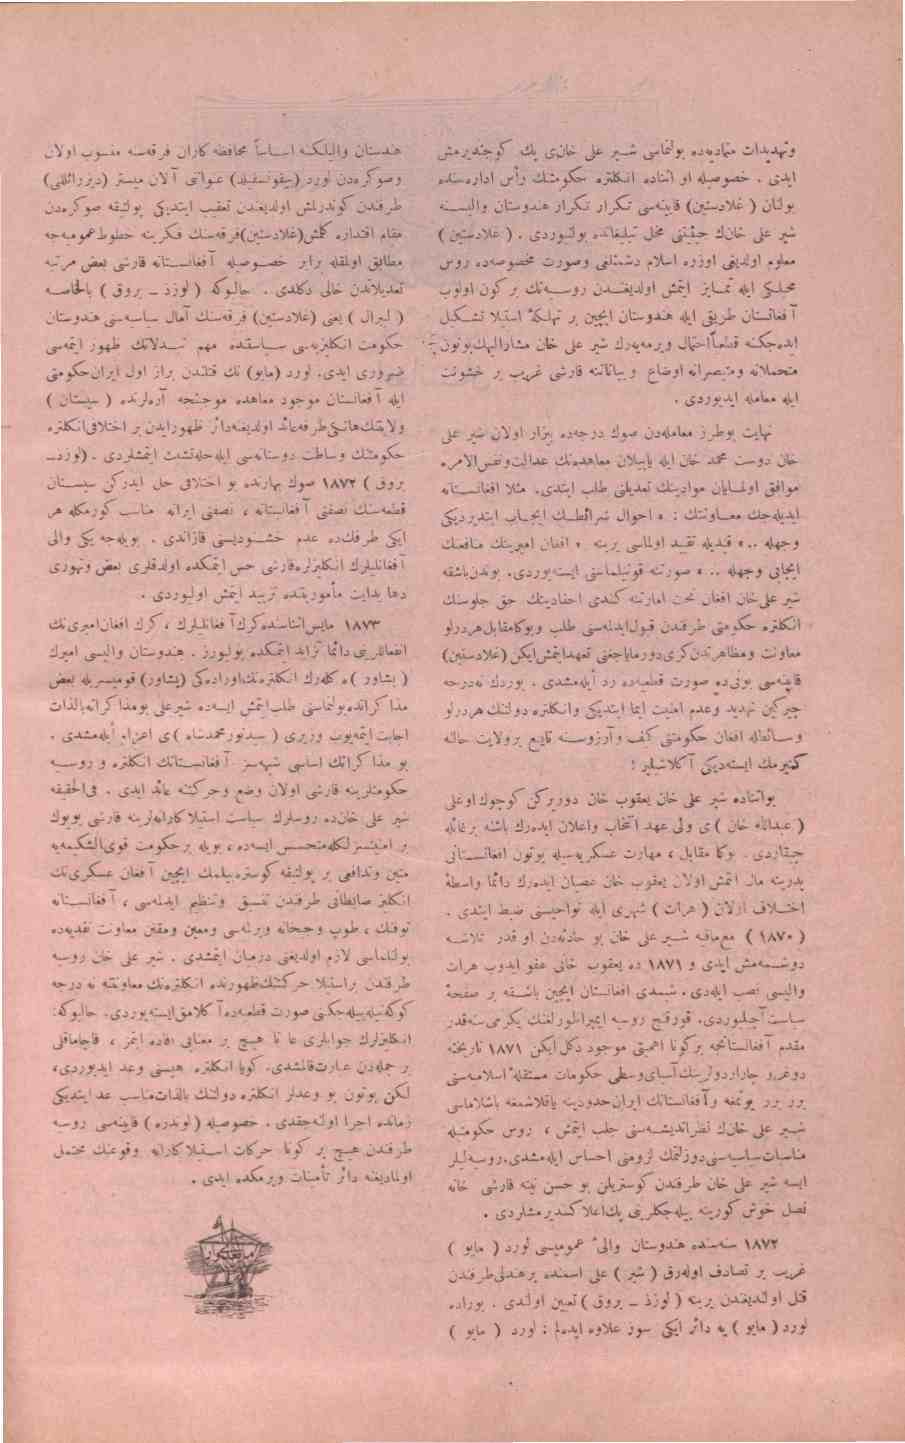 وتهدیدات متمادیه‌ده بولنماسی شیر علی خانی پك كوجندیرمش
ایدی . خصوصیله او اثناده انكلتره حكومتنك رأس اداره‌سنده
بولنان ( غلادستین ) قابینه‌سی تكرار تكرار هندوستان والیسنه
شیر علی خانك جبتنی مخل تبلیغاتده بولنیوردی . ( غلادستین )
معلوم اولدیغی اوزره اسلام دشمنلغی وصورت مخصوصه‌ده روس
محبلكی ایله تمایز ایتمش اولدیغندن روسیه‌نك بر كون اولوب
آفغانستان طریقی ایله هندوستان ایچین بر تهلكهٔ استیلا تشكیل
ایده‌جكنه قطعیاً احتمال ویرمه‌یه‌رك شیر علی خان مشارالیهك بوتون
متحملانه ومتبصرانه اوضاع وبیاناتنه قارشی غریب بر خشونت
ایله معامله ایدیوردی .
نهایت بوطرز معامله‌دن صوك درجه‌ده بیزار اولان شیر علی
خان دوست محمد خان ایله یاپیلان معاهده‌نك عدالت ونفس الامره
موافق اولمایان موادینك تعدیلنی طلب ایتدی . مثلا افغانستانه
ایدیله‌جك معاونتك : « احوال شرائطك ایجاب ایتدیردیكی
وجهله .. » قیدیله تقیید اولماسی یرینه « افغان امیرینك منافعنك
ایجابی وجهله .. » صورتنه قونیلماسنی ایسته‌یوردی . بوندن باشقه
شیر علی خان افغان تخت امارتنه كندی احفادینك حق جلوسنك
انكلتره حكومتی طرفندن قبول ایدلمه‌سنی طلب وبوكا مقابل هر درلو
معاونت ومظاهرتدن كری دورمایاجغنی تعهد ایتمش ایكن (غلادستین)
قابینه‌سی بونی‌ده صورت قطعیه‌ده رد ایله‌مشدی . بوردك نه‌درجه
چیركین تهدید وعدم امنیت ایما ایتدیكی وانكلتره دولتنك هر درلو
وسائطله افغان حكومتنی كیف وآرزوسنه تابع برولایت حالنه
كتیرمك ایسته‌دیكی آكلاشیلیر !
بواثناده شیر علی خان یعقوب خان دوریركن كوچوك اوغلی
( عبدالله خان ) ی ولی عهد انتخاب واعلان ایده‌رك باشنه بر غائله
چیقاردی . بوكا مقابل ، مهارت عسكریه‌سیله بوتون افغانستانی
پدرینه مال ایتمش اولان یعقوب خان عصیان ایده‌رك دائما واسطهٔ
اختلاف اولان ( هرات ) شهری ایله نواحیسنی ضبط ایتدی .
( ١٨٧٠ ) مع‌مافیه شیر علی خان بو حادثه‌دن او قدر تلاشه
دوشمه‌مش ایدی و ١٨٧١ ده یعقوب خانی عفو ایدوب هرات
والیسی نصب ایله‌دی . شیمدی افغانستان ایچین باشقه بر صفحهٔ
سیاست آچیلیوردی . قورقنج روسیه ایمپراطورلغنك یكرمی سنه‌قدر
مقدم آفغانستانجه بركونا اهمیتی موجود دكل ایكن ١٨٧١ تاریخنه
دوغرو چارارد‌ولرینك آسیای وسطی حكومات مستقلهٔ اسلامیه‌سنی
برر برر یوتمغه وآفغانستانك ایران حدودینه یاقلاشمغه باشلاماسی
شیر علی خانك نظر اندیشه‌سنی جلب ایتمش ، روس حكومتیله
مناسبات سیاسیه‌سنی دوزلتمك لزومنی احساس ایله‌مشدی . روسیه‌لیلر
ایسه شیر علی خان طرفندن كوستریلن بو حسن نیته قارشی خانه
نصل خوش كورینه بیله‌جكلرینی پك اعلا كسدیرمشلردی .
١٨٧٢ سنه‌سنده هندوستان والیٔ عمومیسی لورد ( مایو )
غریب بر تصادف اوله‌رق ( شیر ) علی اسمنده برهندلی طرفندن
قتل اولندیغندن یرینه ( لورد ـ بروق ) تعیین اولندی . بوراده
لورد ( مایو ) یه دائر ایكی سوز علاوه ایده‌لم : لورد ( مایو )
هندستان والیلكنه اساساً محافظه كاران فرقه‌سنه منسوب اولان
وصوكره‌دن لورد (بیقونسفیلد) عنوانی آلان میستر (دیزرائللی)
طرفندن كوندرلمش اولدیغندن تعقیب ایتدیكی پولتیقه صوكره‌دن
مقام اقتداره كلمش (غلادستین) فرقه‌سنك فكرینه خطوط عمومیه‌جه
مطابق اولمقله برابر خصوصیله آفغانستانه قارشی بعض مرتبه
تعدیلاتدن خالی دكلدی . حالبوكه ( لورد ـ بروق ) بالخاصه
( لیبرال ) یعنی (غلادستین) فرقه‌سنك آمال سیاسیه‌سنی هندوستان
حكومت انكلیزیه‌سی سیاستنده مهم تبدلاتك ظهور ایتمه‌سی
ضروری ایدی . لورد (مایو) نك قتلندن براز اول ایران حكومتی
ایله آفغانستان موجود معاهده موجبنجه آره‌لرنده ( سیستان )
ولایتنك هانكی طرفه عائد اولدیغنه دائر ظهور ایدن بر اختلافی انكلتره
حكومتنك وساطت دوستانه‌سی ایله حله تشبث ایتمشلردی . (لورد ـ
بروق ) ١٨٧٢ صوك بهارنده بو اختلافی حل ایدركن سیستان
قطعه‌سنك نصفنی آفغانستانه ، نصفنی ایرانه مناسب كورمكله هر
ایكی طرفك‌ده عدم خشنودیسنی قازاندی . بویله‌جه یكی والی
آفغانلیلرك انكلیزلره قارشی حس ایتمكده اولدقلری بغض ونفوری
دها بدایت مأموریتنده تزیید ایتمش اولیوردی .
١٨٧٣ مایس اثناسنده كرك آفغانلیلرك ، كرك افغان امیری‌نك
انفعاللرینی دائما تزاید ایتمكده بولیورز . هندوستان والیسی امیرك
( پشاور ) ه كله‌رك انكلتره‌نك اوراده‌كی (پشاور) قومیسریله بعض
مذاكراتده بولنماسنی طلب ایتمش ایسه‌ده شیرعلی بومذاكراته بالذات
اجابت ایتمه‌یوب وزیری ( سیدنور محمدشاه ) ی اعزام ایله‌مشدی .
بو مذاكراتك اساسی شبهه‌سز آفغانستانك انكلتره و روسیه
حكومتلرینه قارشی اولان وضع وحركتنه عائد ایدی . فی‌الحقیقه
شیر علی خان‌ده روسلرك سیاست استیلاكارانه‌لرینه قارشی بویوك
بر امنیتسزلكله متحسس ایسه‌ده ، بویله بر حكومت قوی‌الشكیمه‌یه
متین وتدافعی بر پولتیقه كوستره‌بیلمك ایچین آفغان عسكری‌نك
انكلیز ضابطانی طرفندن تنسیق وتنظیم ایدلمه‌سی ، آفغانستانه
توفنك ، طوپ وجبخانه ویرلمه‌سی ومعین ومقنن معاونت نقدیه‌ده
بولنلماسی لازم اولدیغنی درمیان ایتمشدی . شیر علی خان روسیه
طرفندن براستیلا حركتنك ظهورنده انكلتره‌نك معاونتنه نه درجه
كوكنیله‌بیله‌جكنی صورت قطعیه‌ده آكلامق ایسته‌یوردی . حالبوكه
انكلیزلرك جوابلری عا تا هیچ بر معنایی افاده ایتمز ، قاچاماقلی
بر جمله‌دن عبارت قالمشدی . كویا انكلتره هپسنی وعد ایدیوردی ،
لكن بوتون بو وعدلر انكلتره دولتنك بالذات مناسب عد ایتدیكی
زمانده اجرا اولنه‌جقدی . خصوصیله (لوندره) قابینه‌سی روسیه
طرفندن هیچ بر كونا حركات استیلاكارانه وقوعنك محتمل
اولمادیغنه دائر تأمینات ویرمكده ایدی .